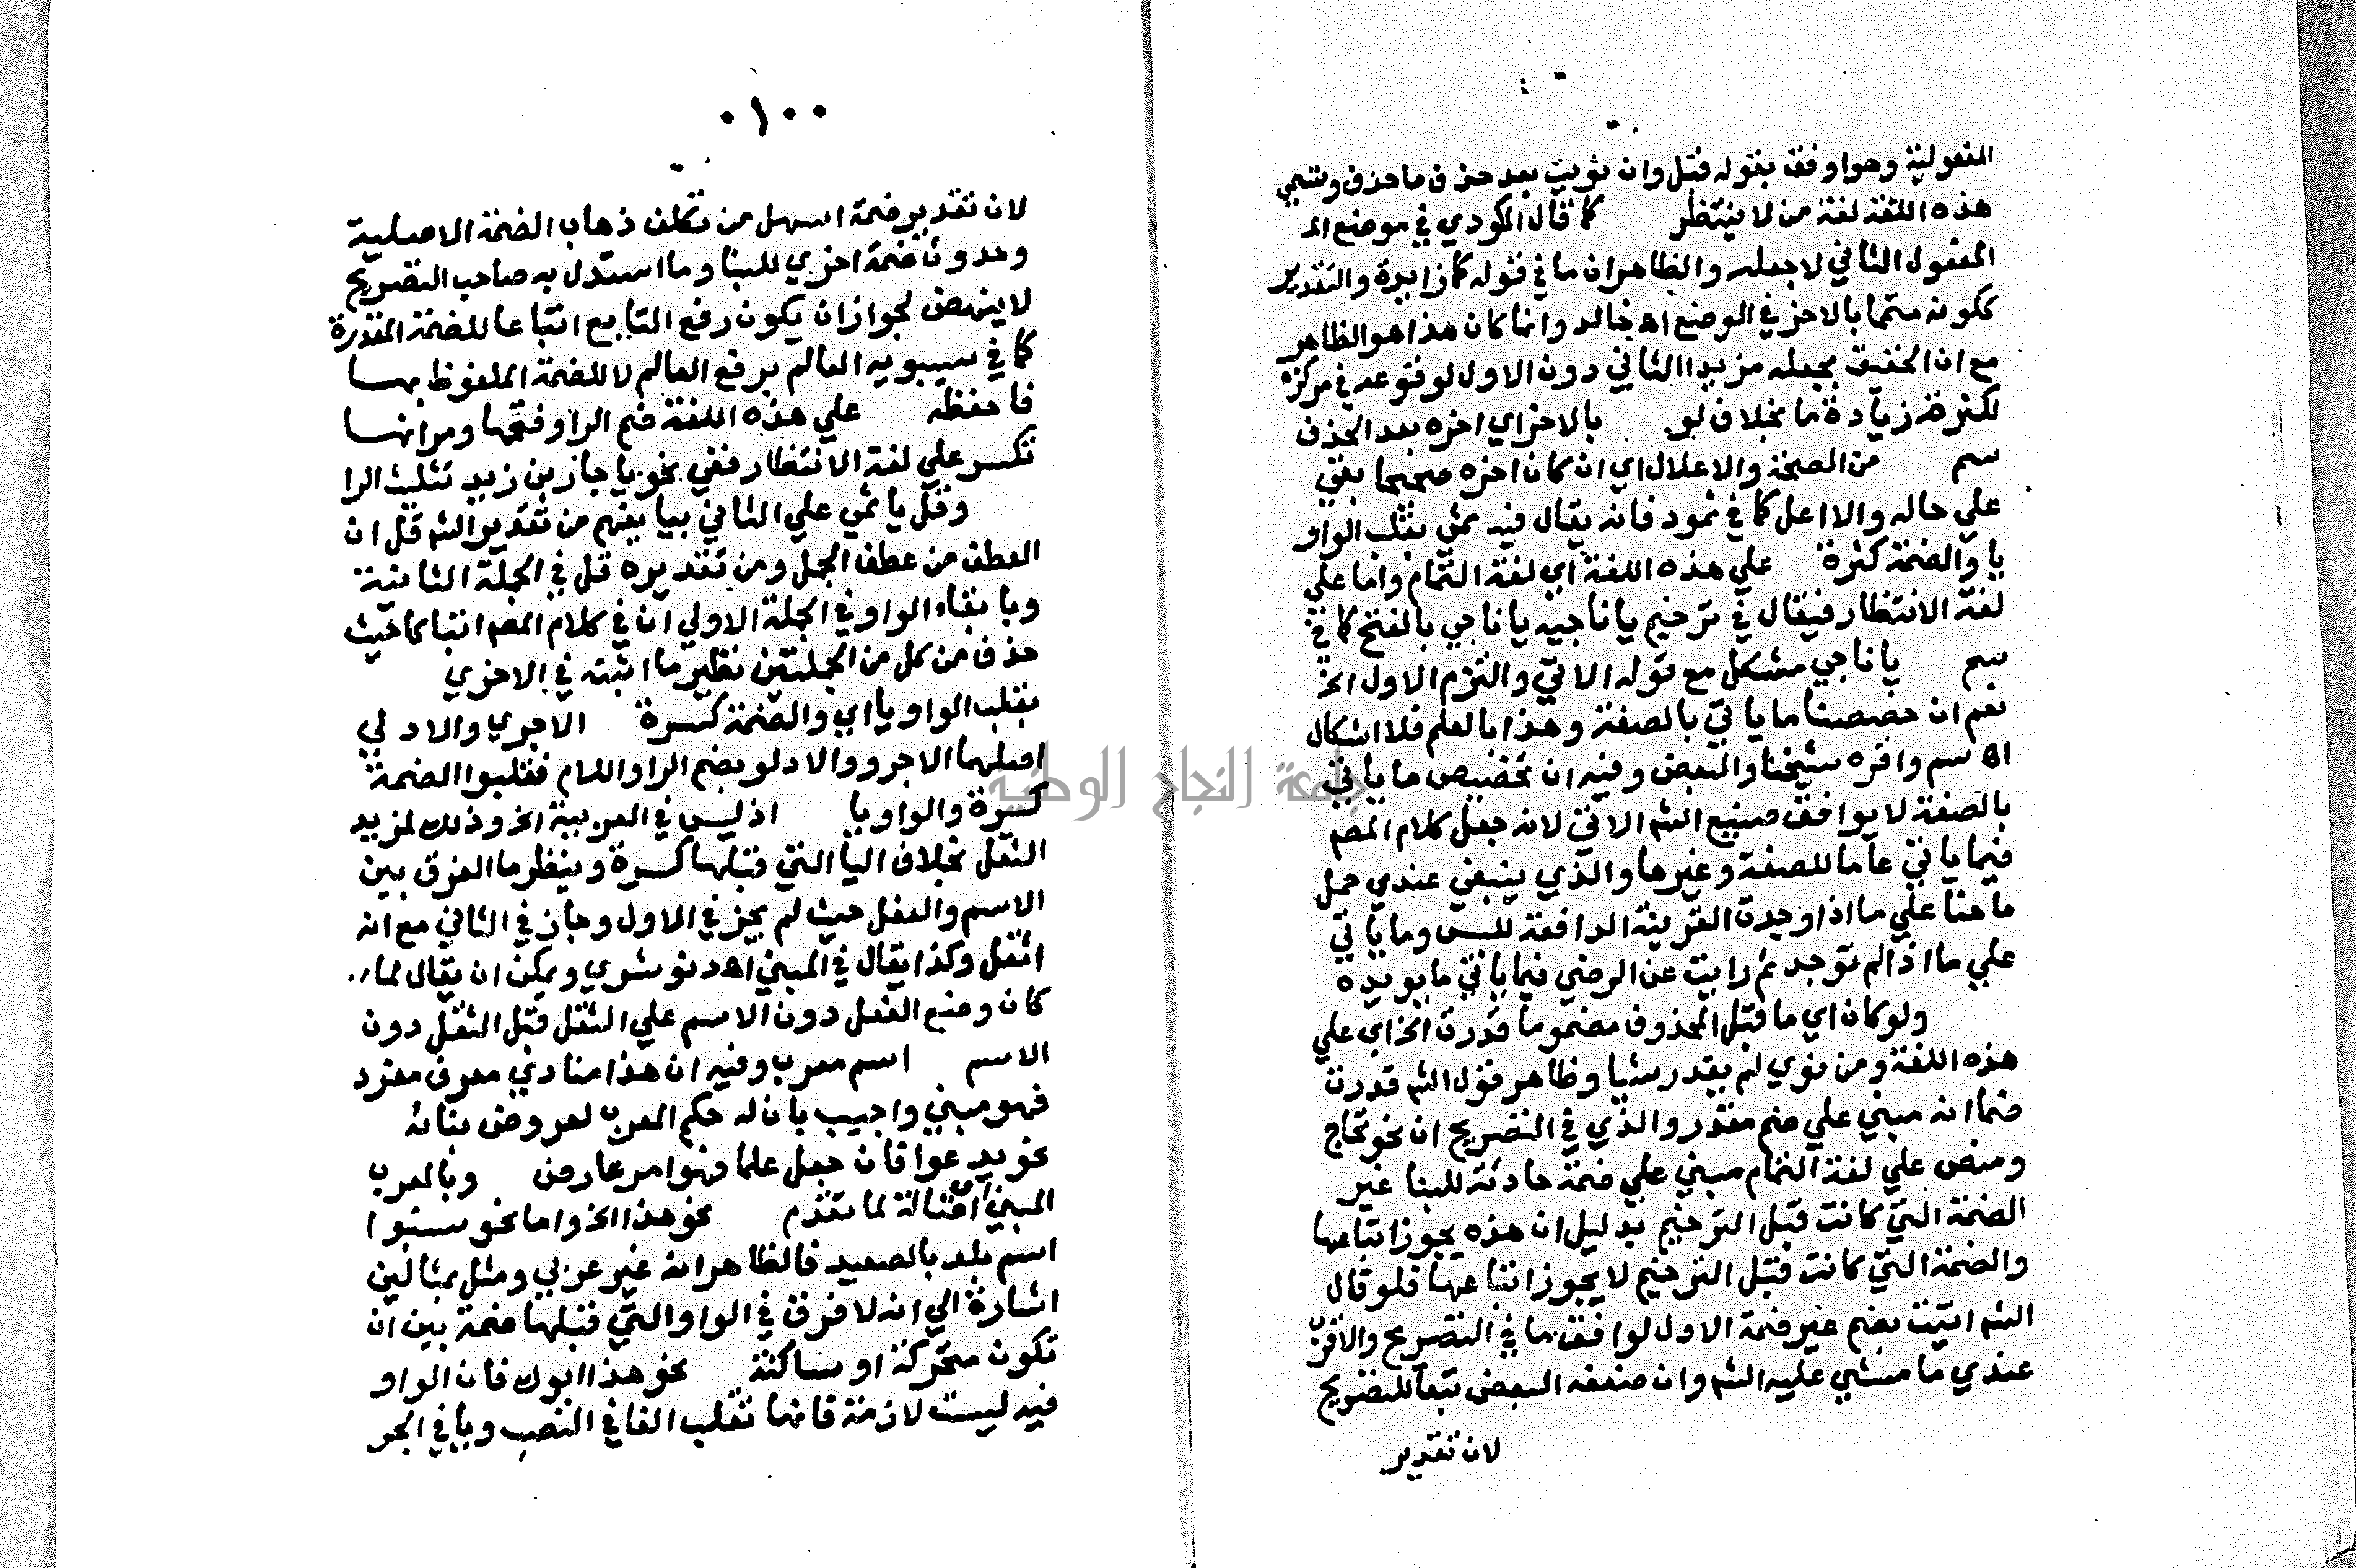 المفعولية وهو اوفق بقوله قبل وان نويت بعد حذف ما حذف وتسمي
هذه اللغة لغة من لا ينتظر كما قال المكودي في موضع الم
المفعول الثاني لاجعله والظاهر ان ما في قوله كما زايدة والتقدير
ككونه متمما بالاخر في الوضع اهـ خالد وانما كان هذا هو الظاهر
مع ان الحقيق بجعله مزيدا الثاني دون الاول لوقوعه في مركزه
لكثرة زيادة ما بخلاف لو بالاخر اي اخره بعد الحذف
سم من الصحة والاعلال اي ان كان اخره صحيحا بقي
علي حاله والا اعل كما في ثمود فانه يقال فيه ثمي بقلب الواو
يا والضمة كثرة علي هذه اللغة اي لغة التمام واما علي
لغة الانتظار فيقال في ترخيم يا ناجية يا ناجي بالفتح كما في
سم يا ناجي مشكل مع قوله الاتي والتزم الاول الخ
نعم ان خصصنا ما ياتي بالصفة وهذا بالعلم فلا اشكال
اهـ سم واقره شيخنا والبعض وفيه ان تخصيص ما ياتي
بالصفة لا يوافق صنيع الشم الاتي لانه جعل كلام المصم
فيما ياتي عاما للصفة وغيرها والذي ينبغي عندي حمل
ما هنا علي ما اذا وجدت القرينة الدافعة للبس وما ياتي
علي ما اذا لم توجد ثم رايت عن الرضي فيما ياتي ما يويده
ولو كان اي ما قبل المحذوف مضموما قدرت الخ اي علي
هذه اللغة ومن نوي لم يقدر شيا وظاهر قول الشم قدرت
ضما انه مبني علي ضم مقدر والذي في التصريح ان نحو تحاج
ومنص علي لغة التمام مبني علي ضمة حادثة للبنا غير
الضمة التي كانت قبل الترخيم بدليل ان هذه يجوز اتباعها
والضمة التي كانت قبل الترخيم لا يجوز اتباعها فلو قال
الشم اتيت بضم غير ضمة الاول لوافق ما في التصريح والاقرب
عندي ما مشي عليه الشم وان ضعفه البعض تبعا للتصريح
لان تقدير
٠١٠٠
لان تقدير ضمة اسهل من تكلف ذهاب الضمة الاصلية
وحدوث ضمة اخري للبنا وما استدل به صاحب التصريح
لا ينهض لجواز ان يكون رفع التابع اتباعا للضمة المقدرة
كما في سيبويه العالم برفع العالم لا للضمة الملفوظ بها
فاحفظه علي هذه اللغة ضم الرا وفتحها ومرانها
تكسر علي لغة الانتظار ففي نحو يا جاز بن زيد تثليث الرا
وقل يا ثمي علي الثاني بيا يفهم من تقدير الشم قل ان
العطف من عطف الجمل ومن تقديره قل في الجملة الثانية
وبا بقاء الواو في الجملة الاولي ان في كلام المصم احتباكا حيث
حذف من كل من الجملتين نظير ما اثبته في الاخري
بقلب الواو يا اي والضمة كسرة الاجري والادلي
اصلهما الاجرو والادلو بضم الرا واللام فقلبوا الضمة
كسرة والواو يا اذ ليس في العربية الخ وذلك لمزيد
الثقل بخلاف اليا التي قبلها كسرة وينظر ما الفرق بين
الاسم والفعل حيث لم يجز في الاول وجاز في الثاني مع انه
اثقل وكذا يقال في المبني اهـ دنوشري ويمكن ان يقال لما
كان وضع الفعل دون الاسم علي الثقل قبل الثقل دون
الاسم اسم معرب وفيه ان هذا منادي معرف مفرد
فهو مبني واجيب بان له حكم المعرب لعروض بنائه
نحو يدعوا فان جعل علما فهو امر عارض وبالمعرب
المبني اي اصالة لما تقدم نحو هذا الخ واما نحو سنبوا
اسم بلد بالصعيد فالظاهر انه غير عربي ومثل بمثالين
اشارة الي انه لا فرق في الواو التي قبلها ضمة بين ان
تكون متحركة او ساكنة نحو هذا ابوك فان الواو
فيه ليست لازمة فانها تقلب الفا في النصب ويا في الجر